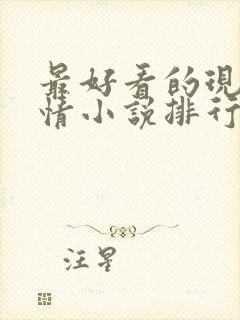 最好看的現
情小說排行
汪星